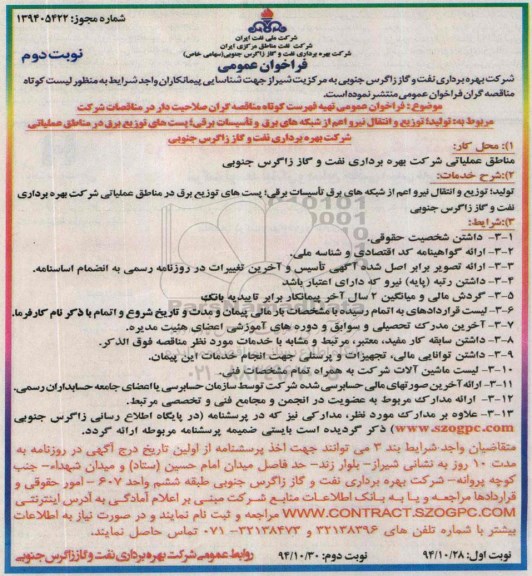 شماره مجوز: ۱۳۹۴۰۵۴۲۲
شرکت ملی نفت ایران
شرکت نفت مناطق مرکزی ایران
شرکت بهره برداری نفت و گاز زاگرس جنوبی(سهامی خاص)
نوبت دوم
فراخوان عمومی
شرکت بهره برداری نفت و گاز زاگرس جنوبی به مرکزیت شیراز جهت شناسایی پیمانکاران واجد شرایط به منظور لیست کوتاه
مناقصه گران فراخوان عمومی منتشر نموده است.
موضوع : فراخوان عمومی تهیه فهرست کوتاه مناقصه گران صلاحیت دار در مناقصات شرکت
مربوط به: تولید؛ توزیع و انتقال نیرو اعم از شبکه های برق و تأسیسات برقی؛ پست های توزیع برق در مناطق عملیاتی
شرکت بهره برداری نفت و گاز زاگرس جنوبی
۱): محل کار:
مناطق عملیاتی شرکت بهره برداری نفت و گاز زاگرس جنوبی
۲):شرح خدمات:
تولید؛ توزیع و انتقال نیرو اعم از شبکه های برق تأسیسات برقی؛ پست های توزیع برق در مناطق عملیاتی شرکت بهره برداری
نفت و گاز زاگرس جنوبی
۳):شرایط:
۳-۱- داشتن شخصیت حقوقی.
۳-۲- ارائه گواهینامه کد اقتصادی و شناسه ملی.
۳-۳- ارائه تصویر برابر اصل شده آگهی تأسیس و آخرین تغییرات در روزنامه رسمی به انضمام اساسنامه.
۳-۴- داشتن رتبه (پایه) نیرو که دارای اعتبار باشد
۳-۵- گردش مالی و میانگین ۲ سال آخر پیمانکار برابر تاییدیه بانک
۳-۶- لیست قراردادهای به اتمام رسیده با مشخصات بار مالی پیمان و مدت و تاریخ شروع و اتمام با ذکر نام کارفرما.
۳-۷- آخرین مدرک تحصیلی و سوابق و دوره های آموزشی اعضای هیئت مدیره.
۳-۸- داشتن سابقه کار مفید، معتبر، مرتبط و مشابه با خدمات مورد نظر مناقصه فوق الذکر.
۳-۹- داشتن توانایی مالی، تجهیزات و پرسنلی جهت انجام خدمات این پیمان.
۳-۱۰- لیست ماشین آلات شرکت به همراه تمام مشخصات فنی
۳-۱۱- ارائه آخرین صورتهای مالی حسابرسی شده شرکت توسط سازمان حسابرسی یا اعضای جامعه حسابداران رسمی.
۳-۱۲- ارائه مدارک مربوط به عضویت در انجمن و مجامع فنی و تخصصی مرتبط.
۳-۱۳- علاوه بر مدارک مورد نظر، مدارکی نیز که در پرسشنامه (در پایگاه اطلاع رسانی زاگرس جنوبی
www.szogpc.com) ذکر گردیده است بایستی ضمیمه پرسشنامه مربوطه ارائه گردد.
متقاضیان واجد شرایط بند ۳ می توانند جهت اخذ پرسشنامه از اولین تاریخ درج آگهی در روزنامه به
مدت ۱۰ روز به نشانی شیراز- بلوار زند- حد فاصل میدان امام حسین (ستاد) و میدان شهداء- جنب
کوچه پروانه- شرکت بهره برداری نفت و گاز زاگرس جنوبی طبقه ششم واحد ۶۰۷ - امور حقوقی و
قراردادها مراجعه و یا به بانک اطلاعات منابع شرکت مبنی بر اعلام آمادگی به آدرس اینترنتی
WWW.CONTRACT.SZOGPC.COM مراجعه و ثبت نام نمایند و در صورت نیاز به اطلاعات
بیشتر با شماره تلفن های ۳۲۱۳۸۳۹۶ و ۳۲۱۳۸۴۷۳- ۰۷۱ تماس حاصل نمایند.
نوبت اول: ۹۴/۱۰/۲۸ نوبت دوم: ۹۴/۱۰/۳۰ روابط عمومی شرکت بهره برداری نفت و گاز زاگرس جنوبی